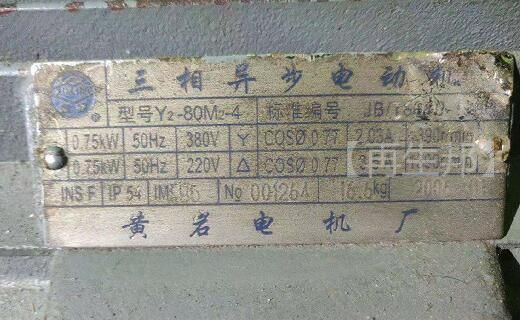 三相异步电动机
型号Y2-80M2-4 标准编号 JB/T
0.75kW 50Hz 380V Y COSØ 0.77 2.03A r/min
0.75kW 50Hz 220V Δ COSØ 0.77
INS F IP 54 IM No 00126A 16.6kg
黄岩电机厂
【再生邦】